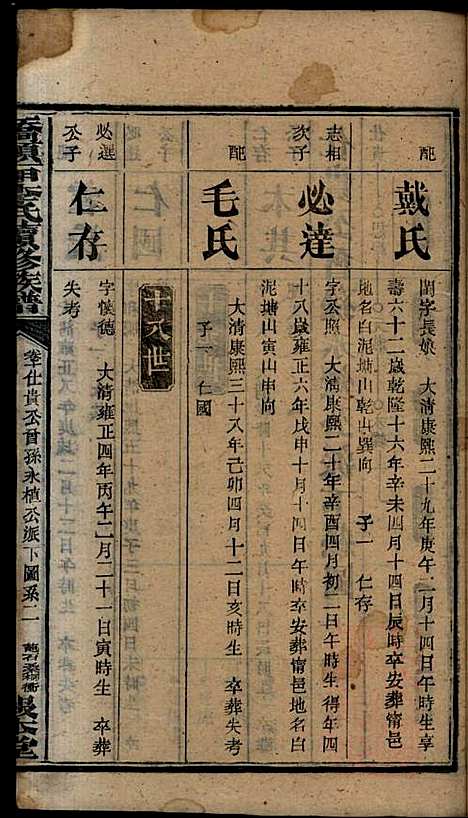 配
戴氏
閨字長娘　大清康熙二十九年庚午二月十四日午時生享
壽六十二歲乾隆十六年辛未四月十四日辰時卒安葬甯邑
地名白泥塘山乾山巽向　子一　仁存
志相
次子
必達
字公照　大清康熙二十年辛酉四月初二日午時生得年四
十八歲雍正六年戊申十月十四日午時卒安葬甯邑地名白
泥塘山寅山申向
配
毛氏
大清康熙三十八年己卯四月十二日亥時生　卒葬失考
子一　仁國
十八世
必選
公子
仁存
字懷德　大清雍正四年丙午二月二十一日寅時生　卒葬
失考
氏續修族譜
卷一仕貴公曾孫永植公派下圖系二